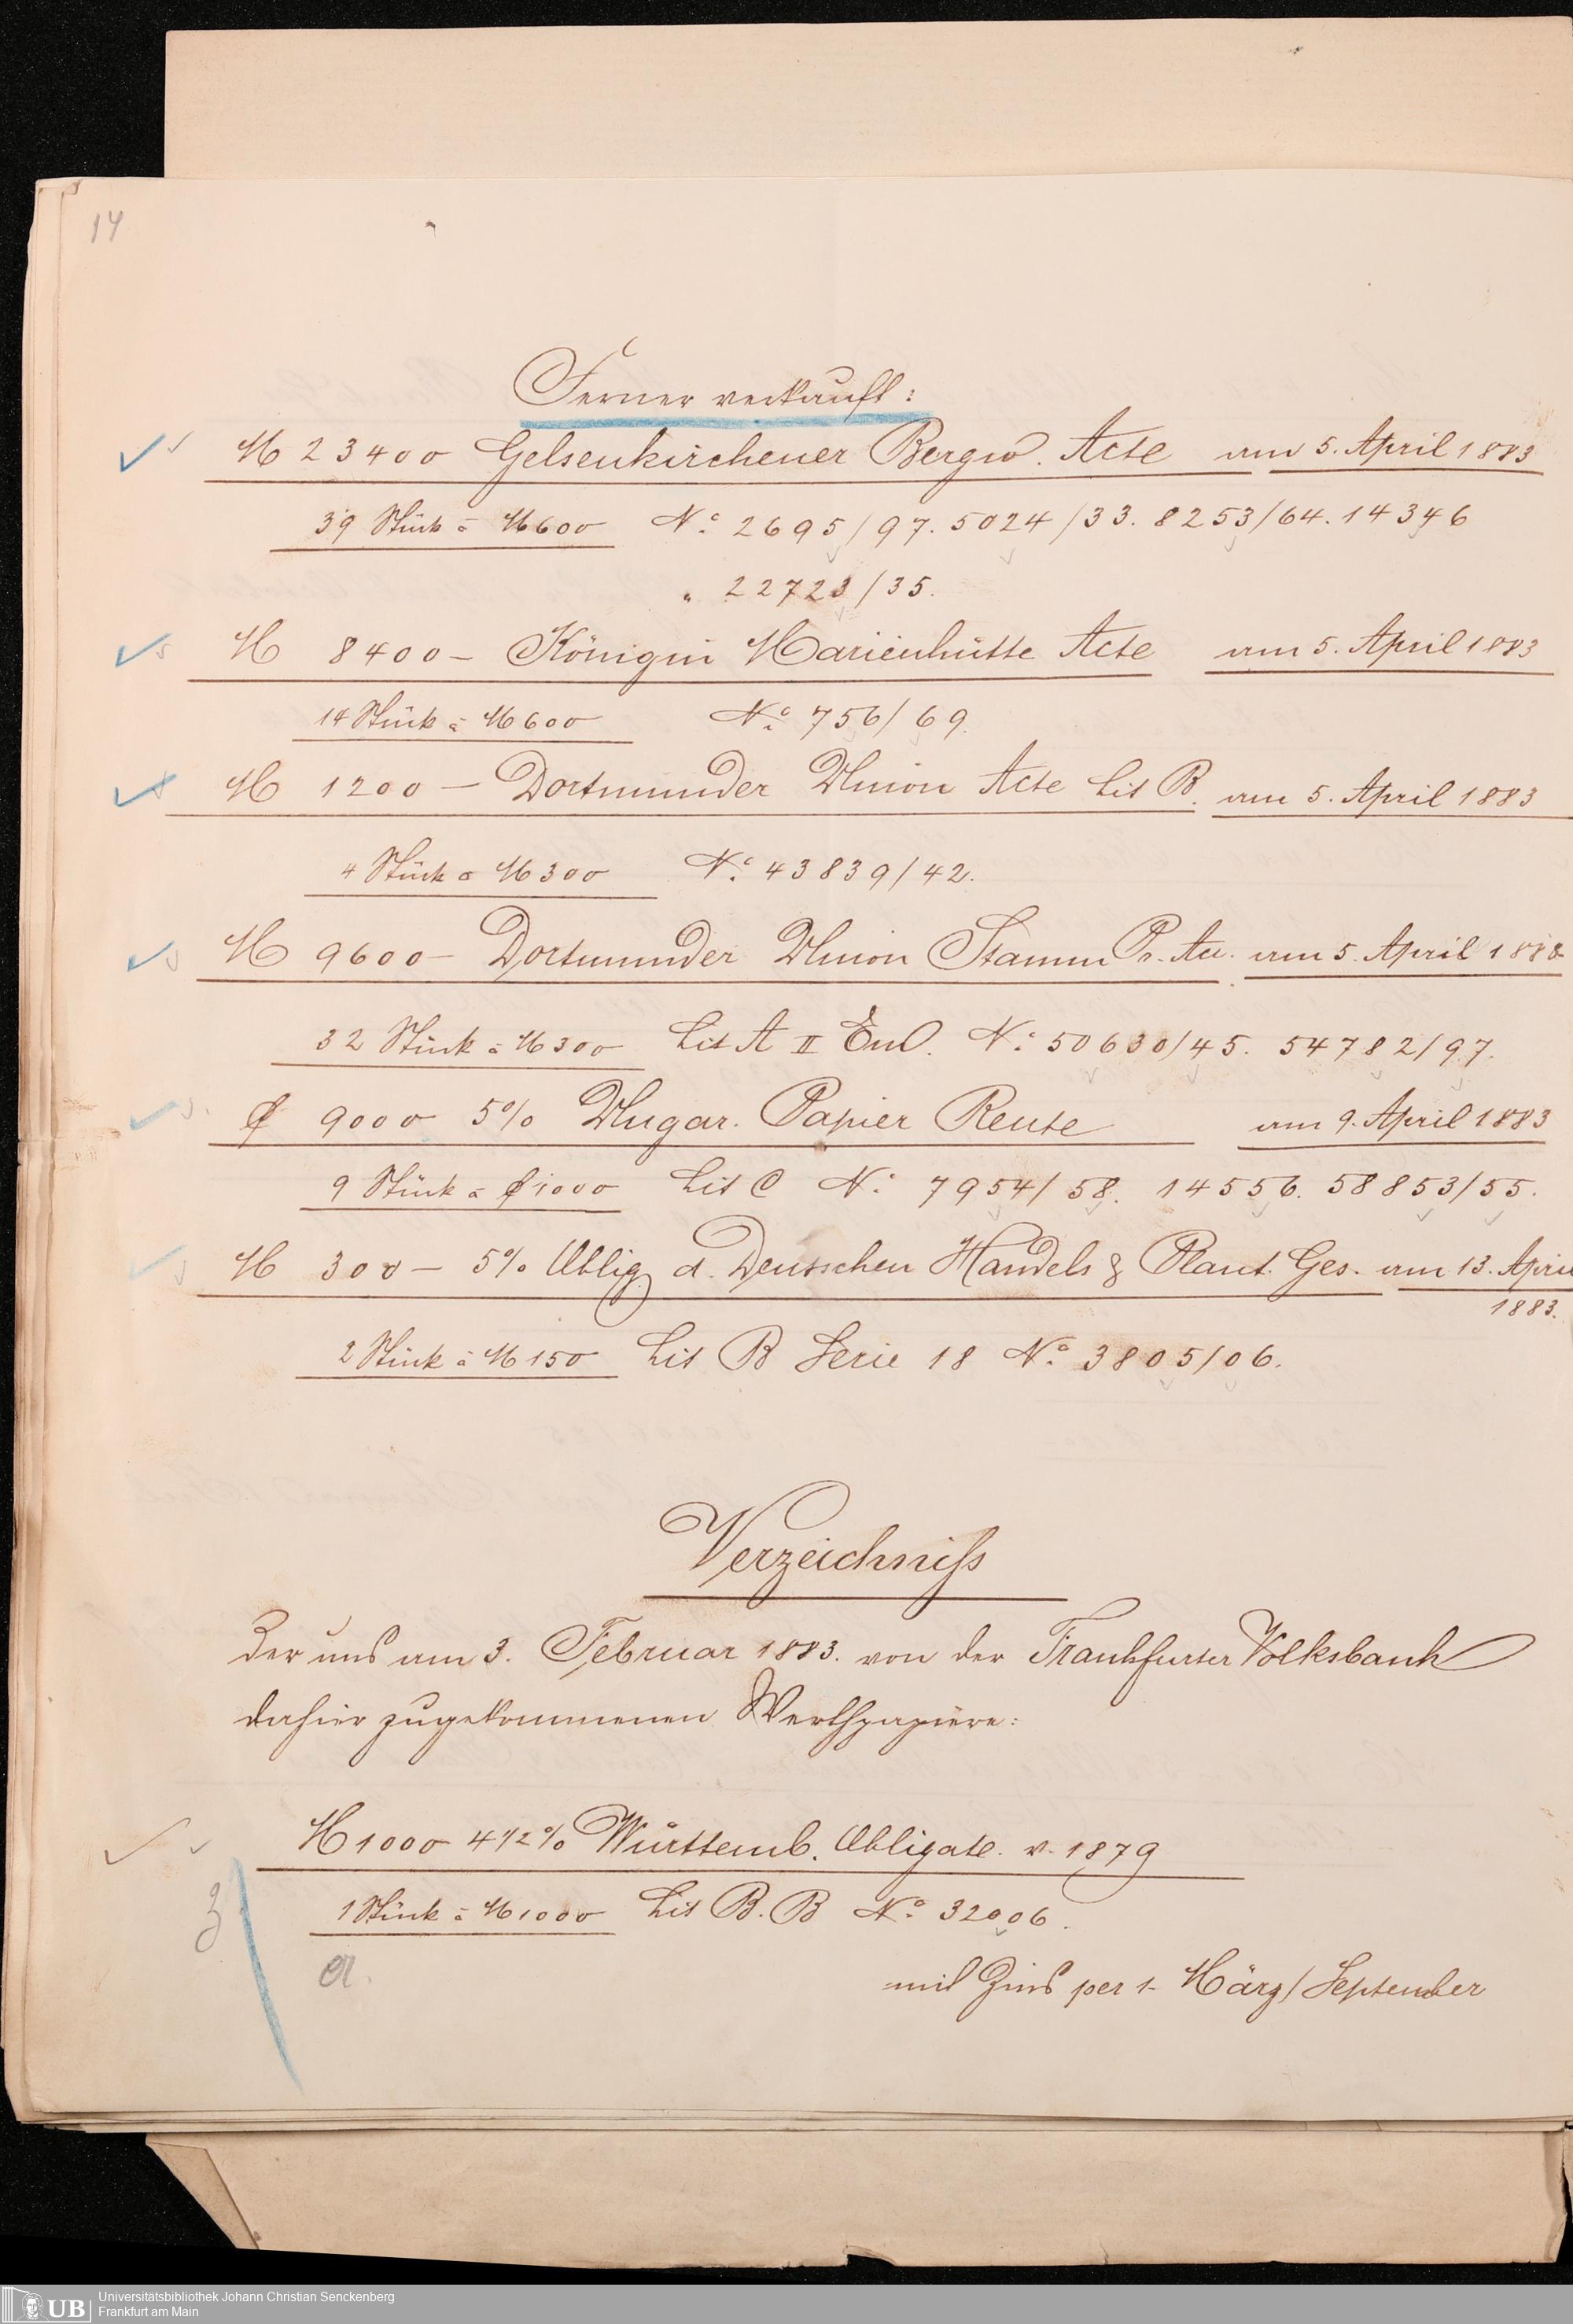 14
Ferner verkauft:
M 23400 Gelsenkirchener Bergw. Acte am 5. April 1883
39 Stück à M 600 No 2695/97. 5024/33. 8253/64. 14346
" 22723/35.
M 8400 – Königin Marienhütte Acte am 5. April 1883
14 Stück à M 600 No 756/69.
M 1200 – Dortmunder Union Acte Lit B. am 5. April 1883
4 Stück à M 300 No 43839/42.
M 9600 – Dortmunder Union Stamm Pr. Act. am 5. April 1883
32 Stück à M 300 Lit A II Em. No 50630/45. 54782/97.
f 9000 5% Ungar. Papier Rente am 9. April 1883
9 Stück à f 1000 Lit C No 7954/58. 14556. 58853/55.
M 300 – 5% Oblig. d. Deutschen Handels & Plant. Ges. am 13. April
1883.
2 Stück à M 150 Lit B Serie 18 No 3805/06.
Verzeichniß
Der uns am 3. Februar 1883. von der Frankfurter Volksbank
dahier zugekommenen Werthpapiere:
M 1000 4 1/2% Württemb. Obligate. v. 1879
1 Stück à M 1000 Lit B.B No 32006.
mit Zins per 1. März/September
UB Universitätsbibliothek Johann Christian Senckenberg
Frankfurt am Main